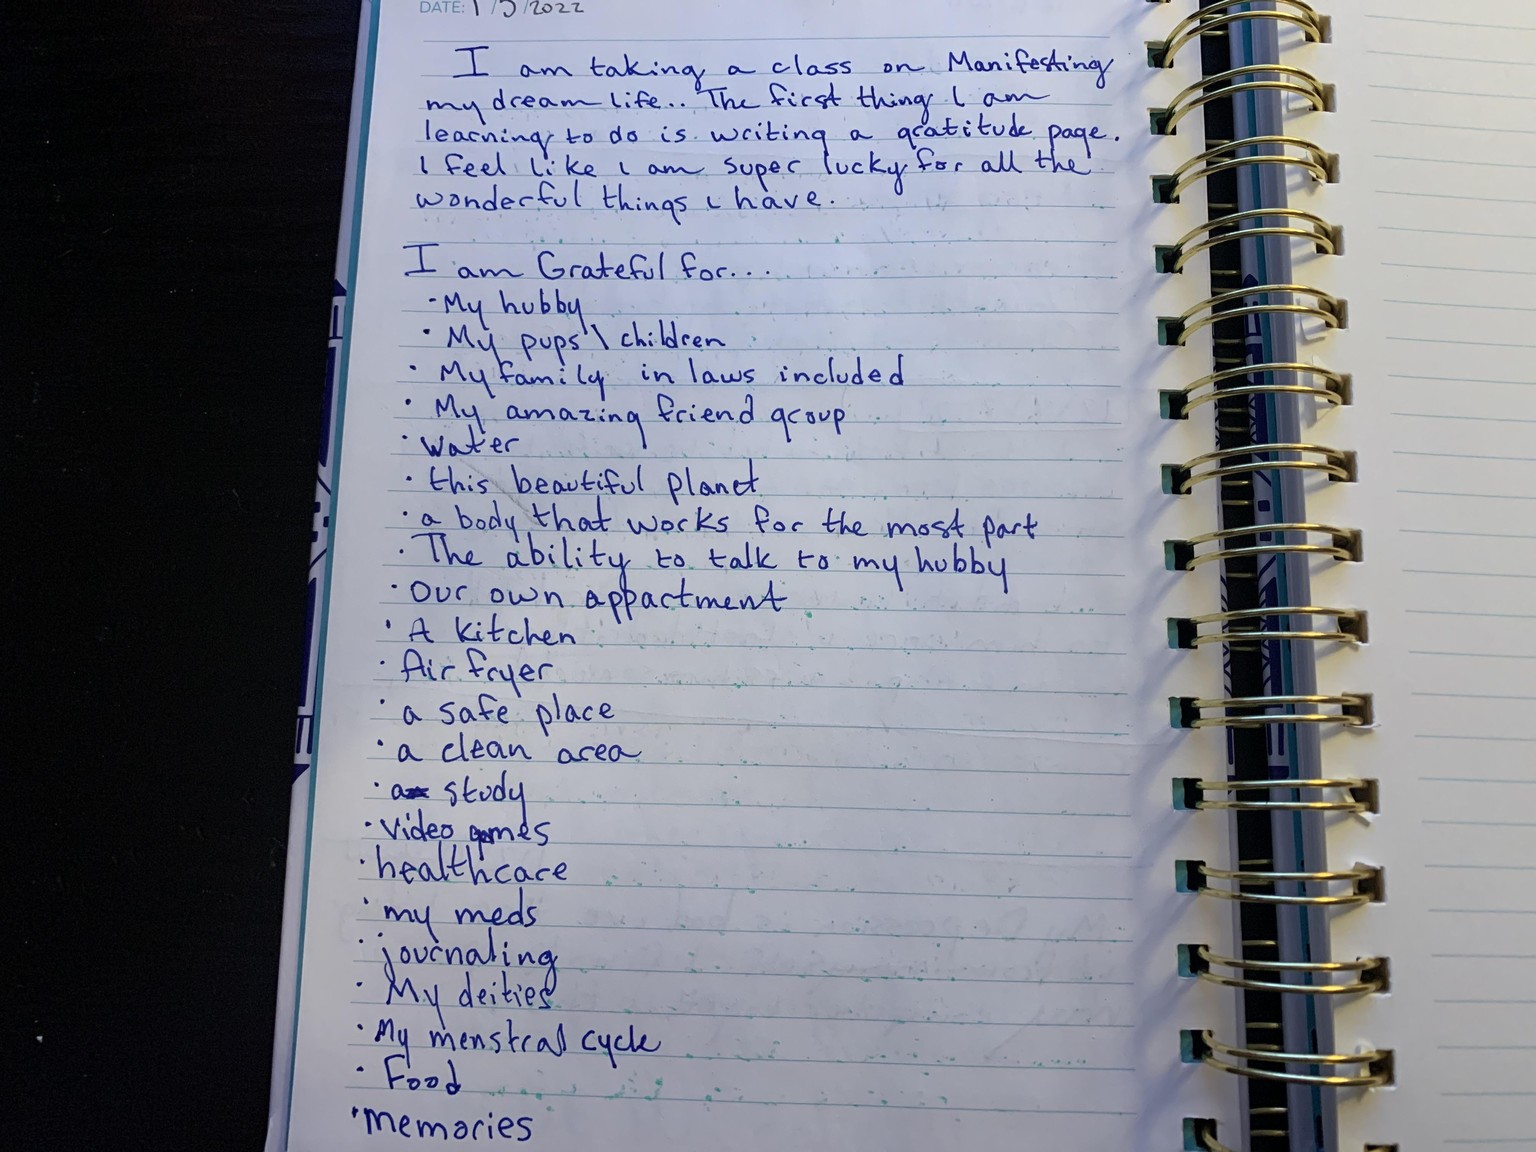 DATE: 1/5/2022
I am taking a class on Manifesting
my dream life.. The first thing I am
learning to do is writing a gratitude page.
I feel like I am super lucky for all the
wonderful things I have.
I am Grateful for...
- My hubby
· My pups \ children
· My family in laws included
· My amazing friend group
· water
· this beautiful planet
· a body that works for the most part
· The ability to talk to my hubby
· Our own appartment
· A kitchen
· Air fryer
· a safe place
· a clean area
· a study
· video games
· healthcare
· my meds
· journaling
· My deities
· My menstral cycle
· Food
· memories